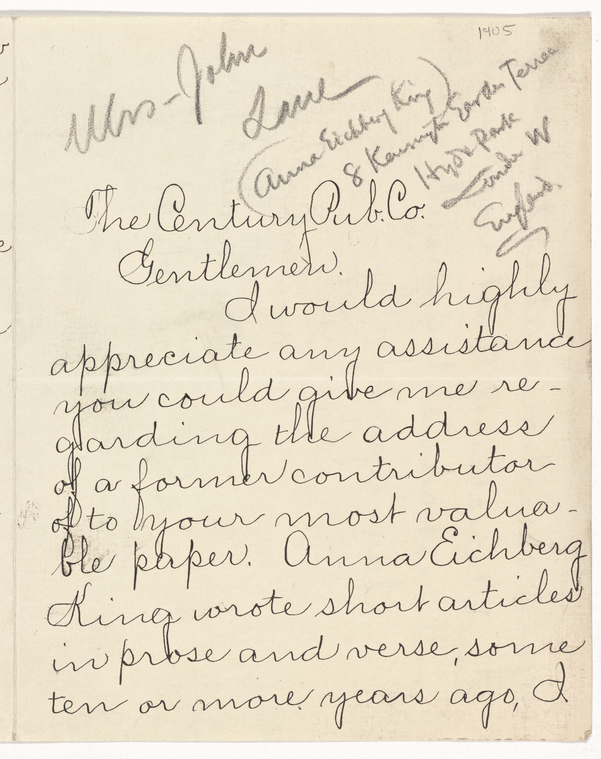 1905
Mrs - John
Lane
(Anna Eichberg King)
8 Kensington Garden Terrace
Hyde Park
London W
England.
The Century Pub. Co.
Gentlemen.
I would highly
appreciate any assistance
you could give me re-
garding the address
of a former contributor
of to your most valua-
ble paper. Anna Eichberg
King wrote short articles
in prose and verse, some
ten or more years ago, I